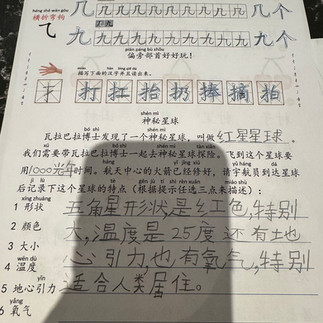 héng zhé wān gōu
横折弯钩
⺄
几 几 几 几 几 几 几 几 几个
九 九 九 九 九 九 九 九 九个
piān páng bù shǒu
偏旁部首好好玩!
描写下面的汉字并且读出来。
扌 打 扛 抬 扔 捧 摘 拍
shén mì
神秘星球
瓦拉巴拉博士发现了一个神秘星球,叫做 红星星球。
我们需要带瓦拉巴拉博士一起去神秘星球探险。飞到这个星球要
用1000光年时间。航天中心的火箭已经修好,请宇航员到达星球
后记录下这个星球的特点(根据提示任选三点来描述):
xíng zhuàng
1 形状 五角星形状,是红色,特别
2 颜色 大,温度是25度还有地
3 大小 心引力也有氧气,特别
wēn dù
4 温度 适合人类居住。
5 地心引力
yǎng qì
6 氧气